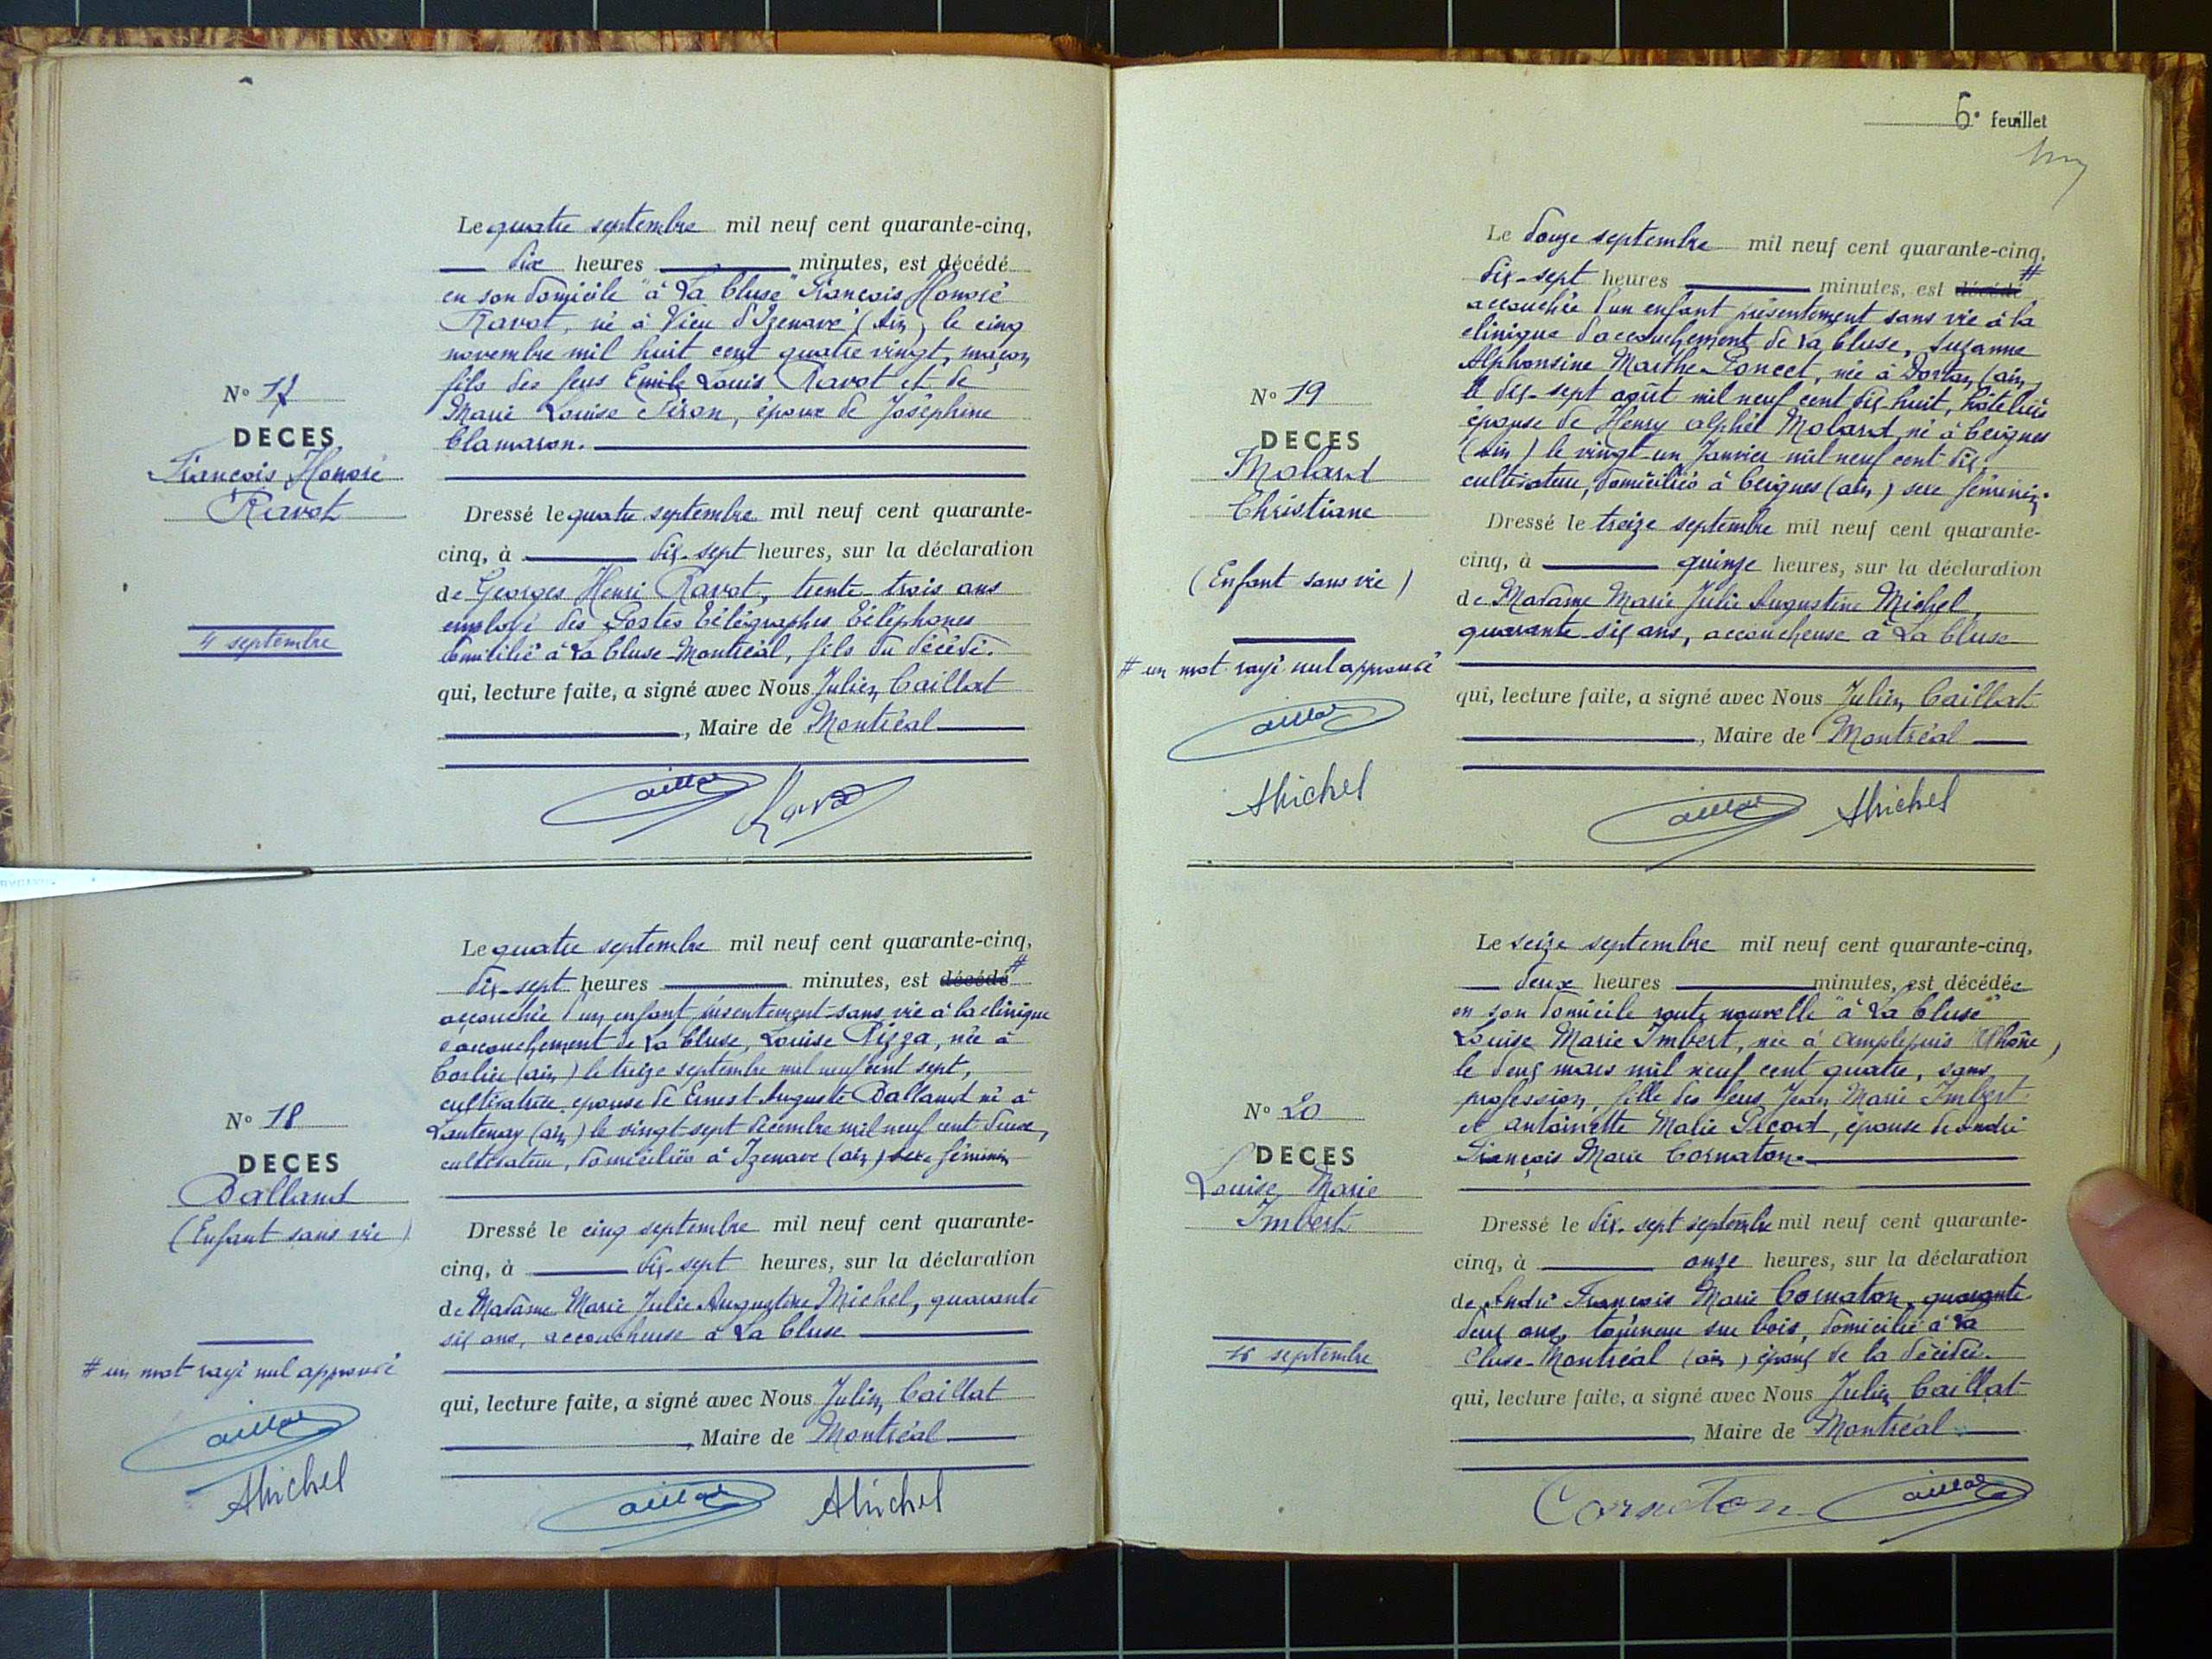 Le quatre septembre mil neuf cent quarante-cinq,
dix heures minutes, est décédé
en son domicile "à La Cluse" François Honoré
Ravot, né à Vieu d'Izenave (Ain) le cinq
novembre mil huit cent quatre vingt, maçon
fils des feus Emile Louis Ravot et de
Marie Louise Piron, époux de Joséphine
Clamaron.
N° 17
DECES
François Honoré
Ravot
4 septembre
Dressé le quatre septembre mil neuf cent quarante-
cinq, à dix-sept heures, sur la déclaration
de Georges Henri Ravot, trente-trois ans
employé des Postes Télégraphes Téléphones
domicilié à La Cluse-Montréal, fils du décédé.
qui, lecture faite, a signé avec Nous Julien Caillat
, Maire de Montréal
Le quatre septembre mil neuf cent quarante-cinq,
dix-sept heures minutes, est décédé #
accouchée d'un enfant présentement sans vie à la clinique
d'accouchement de La Cluse, Louise Rizza, née à
Corlier (ain) le treize septembre mil neuf cent sept,
cultivatrice, épouse de Ernest Auguste Balland né à
Lantenay (ain) le vingt-sept décembre mil neuf cent deux,
cultivateur, domiciliés à Izenave (ain) sexe féminin
N° 18
DECES
Balland
(Enfant sans vie)
# un mot rayé nul approuvé
aillat
Michel
Dressé le cinq septembre mil neuf cent quarante-
cinq, à dix-sept heures, sur la déclaration
de Madame Marie Julie Augustine Michel, quarante
six ans, accoucheuse à La Cluse
qui, lecture faite, a signé avec Nous Julien Caillat
, Maire de Montréal
aillat Michel
6e feuillet
Le douze septembre mil neuf cent quarante-cinq,
dix-sept heures minutes, est décédé #
accouchée d'un enfant présentement sans vie à la
clinique d'accouchement de La Cluse, Suzanne
Alphonsine Marthe Poncet, née à Dortan (ain)
le dix-sept août mil neuf cent dix-huit, hôtelière
épouse de Henry Alphée Molard, né à Ceignes
(Ain) le vingt-un Janvier mil neuf cent dix,
cultivateur, domiciliés à Ceignes (ain) sexe féminin.
N° 19
DECES
Molard
Christiane
(Enfant sans vie)
# un mot rayé nul approuvé
aillat
Michel
Dressé le treize septembre mil neuf cent quarante-
cinq, à quinze heures, sur la déclaration
de Madame Marie Julie Augustine Michel,
quarante six ans, accoucheuse à La Cluse
qui, lecture faite, a signé avec Nous Julien Caillat
, Maire de Montréal
aillat Michel
Le seize septembre mil neuf cent quarante-cinq,
deux heures minutes, est décédée
en son domicile route nouvelle "à La Cluse"
Louise Marie Imbert, née à Amplepuis (Rhône)
le deux mars mil neuf cent quatre, sans
profession, fille des feus Jean Marie Imbert
et antoinette Marie Picard, épouse de André
François Marie Cornaton.
N° 20
DECES
Louise Marie
Imbert
16 septembre
Dressé le dix-sept septembre mil neuf cent quarante-
cinq, à onze heures, sur la déclaration
de André François Marie Cornaton, quarante
deux ans, tourneur sur bois, domicilié à La
Cluse-Montréal (ain) époux de la décédée.
qui, lecture faite, a signé avec Nous Julien Caillat
, Maire de Montréal
Cornaton aillat